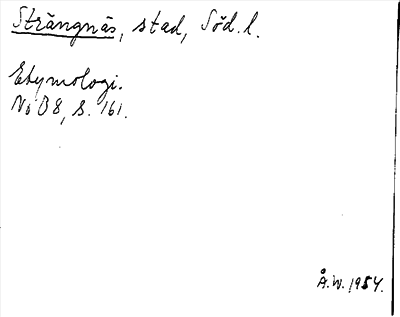 Strängnäs, stad, Söd. l.
Etymologi.
NoB 8, s. 161.
Å.W. 1954.